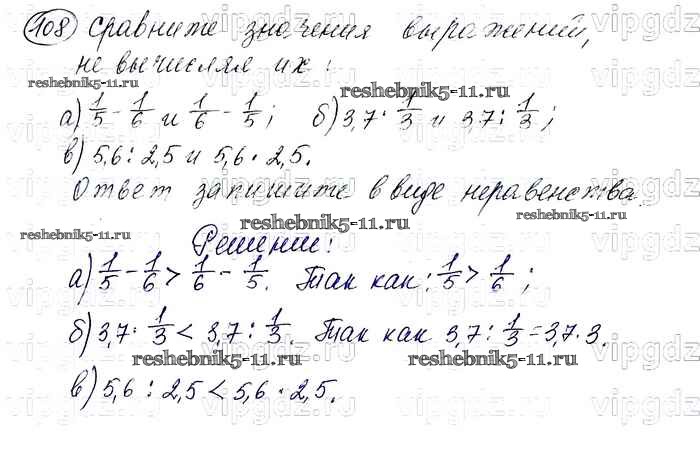 108 Сравните значения выражений,
не вычисляя их:
а) 1/5 - 1/6 и 1/6 - 1/5; б) 3,7 · 1/3 и 3,7 : 1/3;
в) 5,6 : 2,5 и 5,6 · 2,5.
Ответ запишите в виде неравенства.
Решение:
а) 1/5 - 1/6 > 1/6 - 1/5. Так как: 1/5 > 1/6;
б) 3,7 · 1/3 < 3,7 : 1/3. Так как 3,7 : 1/3 = 3,7 · 3.
в) 5,6 : 2,5 < 5,6 · 2,5.
reshebnik5-11.ru
reshebnik5-11.ru
reshebnik5-11.ru
reshebnik5-11.ru
reshebnik5-11.ru
reshebnik5-11.ru
reshebnik5-11.ru
vipgdz.ru